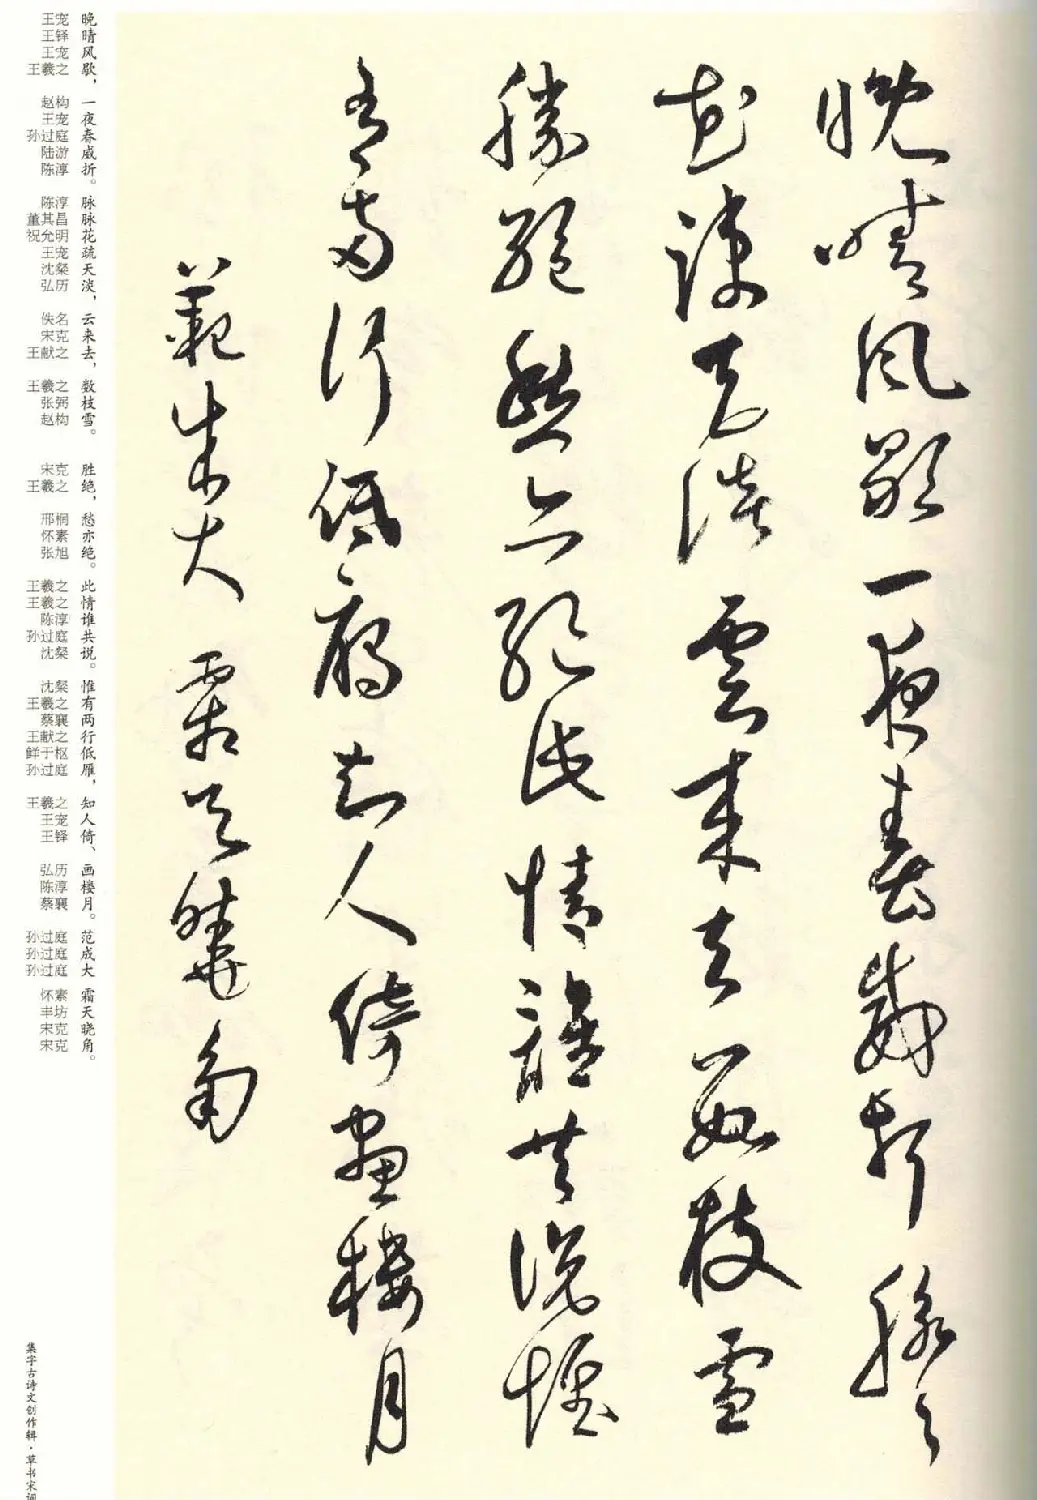 晚晴風歇一夜春威折脉々
花疎天淡雲来去數枝雪
勝絶愁亦絶此情誰共説惟
有兩行低鴈知人倚畫樓月
範成大 霜天曉角
晚晴风歇，一夜春威折。脉脉花疏天淡，云来去，数枝雪。 胜绝，愁亦绝。此情谁共说。惟有两行低雁，知人倚、画楼月。 范成大 霜天晓角。
王宠 王铎 王宠 王羲之 赵构 王宠 孙过庭 陆游 陈淳 陈淳 董其昌 祝允明 王宠 沈粲 弘历 佚名 宋克 王献之 王羲之 张弼 赵构 宋克 王羲之 邢侗 怀素 张旭 王羲之 王羲之 陈淳 孙过庭 沈粲 沈粲 王羲之 蔡襄 王献之 鲜于枢 孙过庭 王羲之 王宠 王铎 弘历 陈淳 蔡襄 孙过庭 孙过庭 孙过庭 怀素 丰坊 宋克 宋克
集字古诗文创作辑·草书宋词